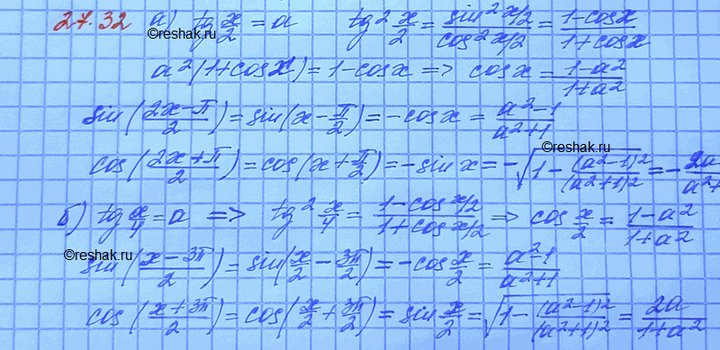 27.32 а) tg x/2 = a    tg² x/2 = sin² x/2 / cos² x/2 = 1-cosx / 1+cosx
©reshak.ru
a²(1+cosx) = 1-cosx => cosx = 1-a² / 1+a²
sin(2x-π / 2) = sin(x - π/2) = -cosx = a²-1 / a²+1
©reshak.ru
cos(2x+π / 2) = cos(x + π/2) = -sinx = -√(1 - (a²-1)² / (a²+1)²) = - 2a / a²+
б) tg x/4 = a => tg² x/4 = 1-cos x/2 / 1+cos x/2 => cos x/2 = 1-a² / 1+a²
©reshak.ru
sin(x-3π / 2) = sin(x/2 - 3π/2) = -cos x/2 = a²-1 / a²+1
cos(x+3π / 2) = cos(x/2 + 3π/2) = sin x/2 = √(1 - (a²-1)² / (a²+1)²) = 2a / 1+a²